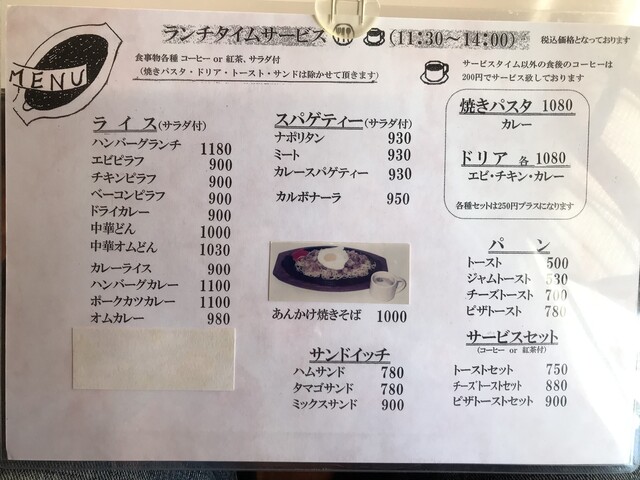 MENU
ランチタイムサービス (11:30〜14:00) 税込価格となっております
食事物各種 コーヒー or 紅茶、サラダ付
(焼きパスタ・ドリア・トースト・サンドは除かせて頂きます)
サービスタイム以外の食後のコーヒーは
200円でサービス致しております
ライス(サラダ付)
ハンバーグランチ 1180
エビピラフ 900
チキンピラフ 900
ベーコンピラフ 900
ドライカレー 900
中華どん 1000
中華オムどん 1030
カレーライス 900
ハンバーグカレー 1100
ポークカツカレー 1100
オムカレー 980
スパゲティー(サラダ付)
ナポリタン 930
ミート 930
カレースパゲティー 930
カルボナーラ 950
あんかけ焼きそば 1000
サンドイッチ
ハムサンド 780
タマゴサンド 780
ミックスサンド 900
焼きパスタ 1080
カレー
ドリア 各 1080
エビ・チキン・カレー
各種セットは250円プラスになります
パン
トースト 500
ジャムトースト 530
チーズトースト 700
ピザトースト 780
サービスセット
(コーヒー or 紅茶付)
トーストセット 750
チーズトーストセット 880
ピザトーストセット 900